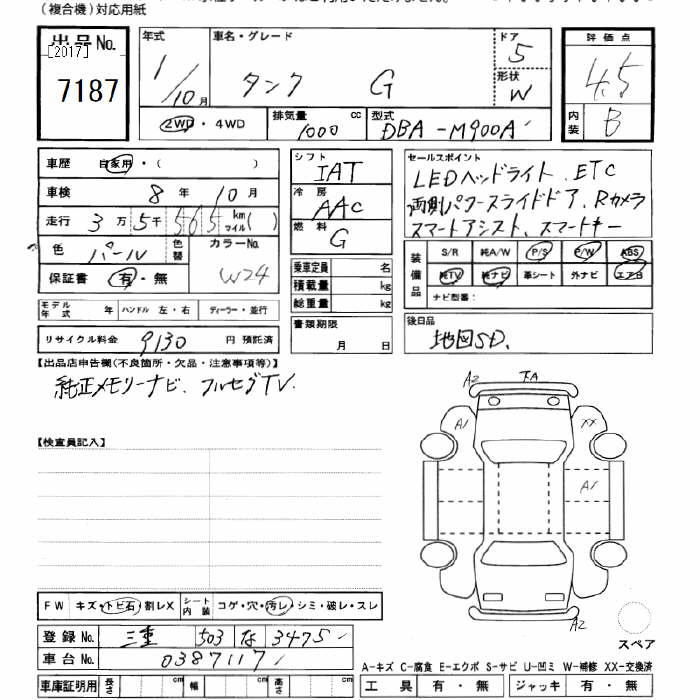 (複合機)対応用紙
出品No. [2017] 7187
年式 1/10月 車名・グレード タンク G ドア 5 形状 W
評価点 4.5 内装 B
2WD・4WD 排気量 1000 cc 型式 DBA-M900A
車歴 自家用・( )
車検 8年 10月
走行 3万 5千 565 km マイル( )
色 パール 色替 カラーNo. W24
保証書 有・無
モデル年式 年 ハンドル 左・右 ディーラー・並行
リサイクル料金 9130 円 預託済
シフト IAT
冷房 AAC
燃料 G
乗車定員 名
積載量 kg
総重量 kg
書類期限 月 日
セールスポイント
LEDヘッドライト、ETC
両側パワースライドドア、Rカメラ
スマートアシスト、スマートキー
装備品 S/R 純A/W P/S P/W ABS
純TV 純ナビ 革シート 外ナビ エアB
ナビ型番:
後日品 地図SD.
【出品店申告欄(不良箇所・欠品・注意事項等)】
純正メモリーナビ、フルセグTV.
【検査員記入】
A2 下A
A1 XX
A1
A2
スペア
FW キズ・トビ石・割レX シート内装 コゲ・穴・汚レ・シミ・破レ・スレ
登録No. 三重 503 な 3475
車台No. 0387117
A-キズ C-腐食 E-エクボ S-サビ U-凹ミ W-補修 XX-交換済
車庫証明用 長さ cm 幅 cm 高さ cm
工具 有・無 ジャッキ 有・無